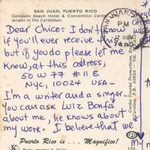 SAN JUAN, PUERTO RICO
Condado Beach Hotel & Convention Center
Dear Chico: I don't know
if you'll ever receive this
but if you do please let me
know, at this address,
50 W 77 # 11 E
NYC, 10024 USA
I'm a writer and a singer.
You can ask Luiz Bonfá
about me, he knows about
my work. I believe that we
Puerto Rico is... Magnifico!
PM